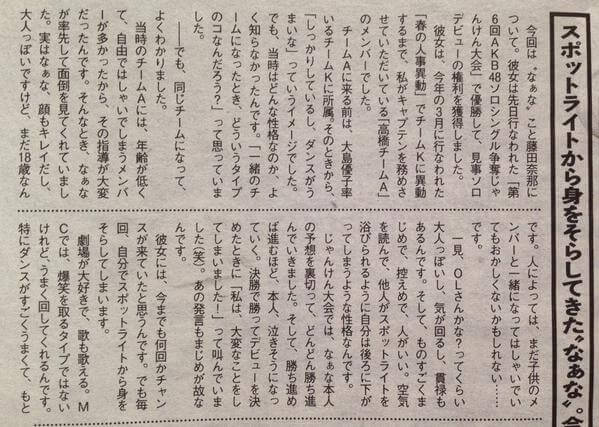 スポットライトから身をそらしてきた“なぁな”。
今回は〝なぁな〟こと藤田奈那に
ついて。彼女は先日行なわれた「第
6回AKB48ソロシングル争奪じゃ
んけん大会」で優勝して、見事ソロ
デビューの権利を獲得しました。
彼女は、今年の3月に行なわれた
「春の人事異動」でチームKに異動
するまで、私がキャプテンを務めさ
せていただいている「高橋チームA」
のメンバーでした。
チームAに来る前は、大島優子率
いるチームKに所属。そのときから、
「しっかりしているし、ダンスがう
まいな」っていうイメージでした。
でも、当時はどんな性格なのか、よ
く知らなかったんです。「一緒のチ
ームになったとき、どういうタイプ
のコなんだろう?」って思っていま
した。
――でも、同じチームになって、
よくわかりました。
当時のチームAには、年齢が低く
て、自由ではしゃいでしまうメンバ
ーが多かったから、その指導が大変
だったんです。そんなとき、なぁな
が率先して面倒を見てくれていまし
た。実はなぁな、顔もキレイだし、
大人っぽいですけど、まだ18歳なん
です。人によっては、まだ子供のメ
ンバーと一緒になってはしゃいでい
てもおかしくないかもしれない……
です。
一見、OLさんかな?ってくらい
大人っぽいし、気が回るし、貫禄も
あるんです。そして、ものすごくま
じめで、控えめで、人がいい。空気
を読んで、他人がスポットライトを
浴びられるように自分は後ろに下が
ってしまうような性格なんです。
じゃんけん大会では、なぁな本人
の予想を裏切って、どんどん勝ち進
んでいきました。そして、勝ち進め
ば進むほど、本人、泣きそうになっ
ていく。決勝で勝ってデビューを決
めたときに「私は、大変なことをし
てしまいました!」って叫んでいま
した(笑)。あの発言もまじめが故な
んです。
彼女には、今までも何回かチャン
スが来ていたと思うんです。でも毎
回、自分でスポットライトから身を
そらしてしまいます。
劇場が大好きで、歌も歌える。M
Cでは、爆笑を取るタイプではない
けれど、うまく回してくれるんです。
特にダンスがすごくうまくて、もと